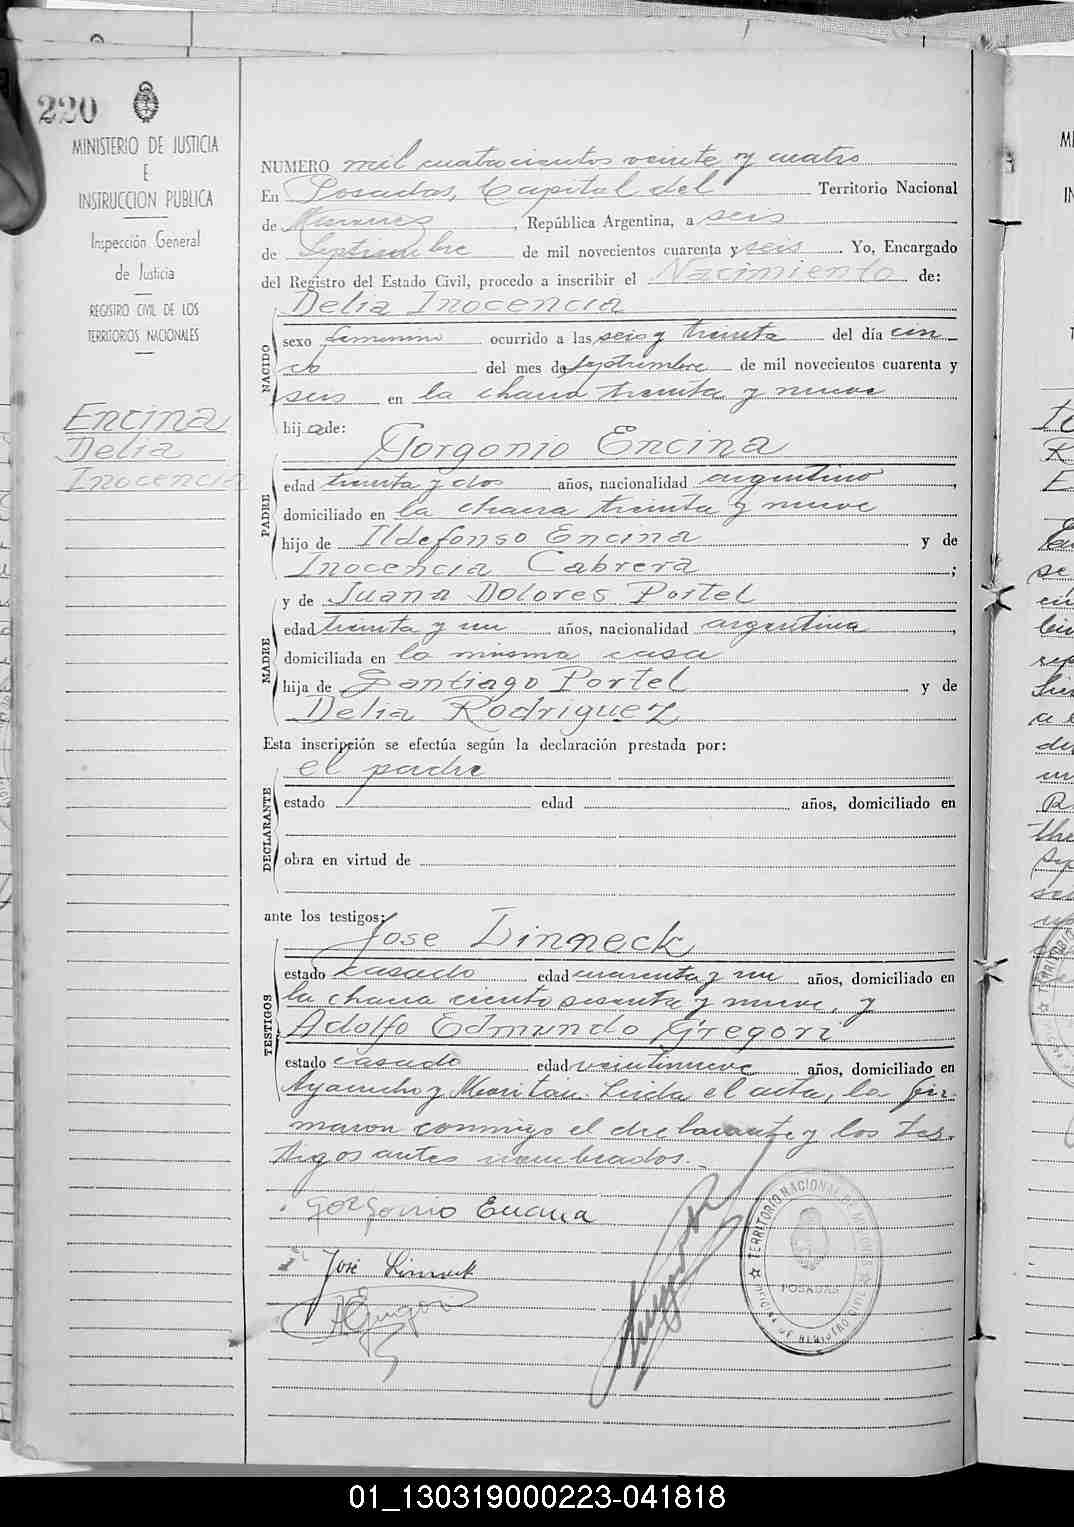 220
MINISTERIO DE JUSTICIA
E
INSTRUCCION PUBLICA
Inspección General
de Justicia
REGISTRO CIVIL DE LOS
TERRITORIOS NACIONALES
Encina
Delia
Inocencia
NUMERO mil cuatrocientos veinte y cuatro
En Posadas, Capital del Territorio Nacional
de Misiones, República Argentina, a seis
de Septiembre de mil novecientos cuarenta y seis. Yo, Encargado
del Registro del Estado Civil, procedo a inscribir el Nacimiento de:
Delia Inocencia
NACIDO
sexo femenino ocurrido a las seis y treinta del día cin-
co del mes de septiembre de mil novecientos cuarenta y
seis en la chacra treinta y nueve
hija de: Gorgonio Encina
PADRE
edad treinta y dos años, nacionalidad argentino,
domiciliado en la chacra treinta y nueve
hijo de Ildefonso Encina y de
Inocencia Cabrera;
y de Juana Dolores Portel
MADRE
edad treinta y un años, nacionalidad argentina,
domiciliada en la misma casa
hija de Santiago Portel y de
Delia Rodriguez
Esta inscripción se efectúa según la declaración prestada por:
el padre
DECLARANTE
estado edad años, domiciliado en
obra en virtud de
ante los testigos:
Jose Linneck
TESTIGOS
estado casado edad cuarenta y un años, domiciliado en
la chacra ciento sesenta y nueve, y
Adolfo Edmundo Gregori
estado casado edad veintinueve años, domiciliado en
Ayacucho y Leida el acta, la fir-
maron conmigo el declarante y los tes-
tigos antes nombrados.-
Gorgonio Encina
José Linneck
AEGregori
TERRITORIO NACIONAL DE MISIONES
POSADAS
REGISTRO CIVIL
01_130319000223-041818